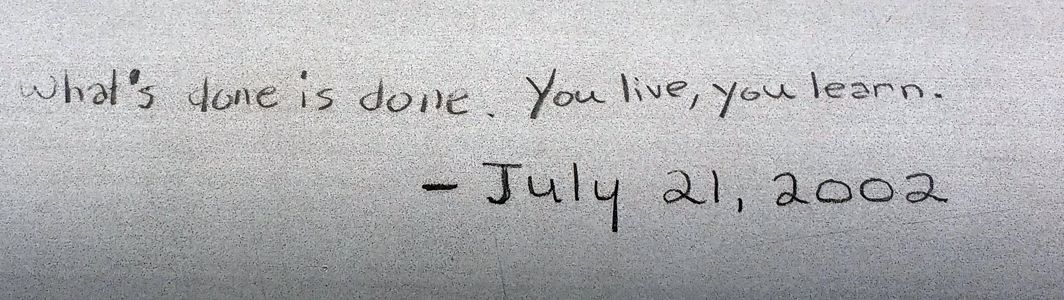 What's done is done. You live, you learn.
- July 21, 2002